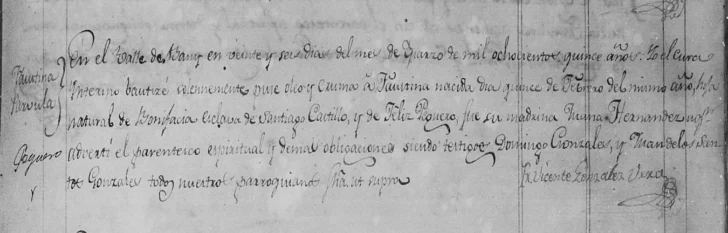 Faustina
Parvula
Peguero
En el Valle de Bany en veinte y seis dias del mes de Marzo de mil ochocientos quince años. Yo el cura
Interino bautizé solemnemente puse oleo y crisma â Faustina nacida dia quince de Febrero del mismo año, hija
natural de Bonifacia esclava de Santiago Castillo, y de Feliz Peguero, fue su madrina Maria Hernandez
advertí el parentesco espiritual y demas obligaciones siendo testigos Domingo Gonzales, y Juan de los San-
tos Gonzales todos nuestros parroquianos fha. ut supra
Fr. Vicente Gonzalez Urra